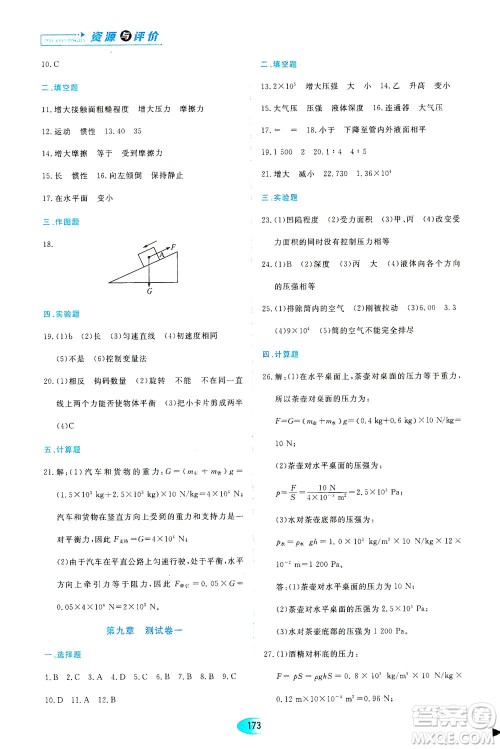 资源与评价
10.C
二、填空题
11.增大接触面粗糙程度 摩擦力 摩擦力
12.运动 惯性 13.40 35
14.增大摩擦 等于 受到摩擦力
15.长 惯性 16.向左倾倒 保持静止
17.在水平面 变小
三、作图题
18.
F
A
G
四、实验题
19.(1)b (2)长 (3)匀速直线 (4)初速度相同
(5)不是 (6)控制变量法
20.(1)相反 钩码数量 (2)旋转 不能 不在同一直
线上两个力能否使物体平衡 (3)把小卡片剪成两半
(4)C
五、计算题
21.解:(1)汽车和货物的重力:G=(m车+m货)g=
(1.5×10³ kg+2.5×10³ kg)×10 N/kg=4×10⁴ N
因汽车与货物在竖直方向上受到的重力和支持力是一
对平衡力,因此,它们大小相等.
(2)由于汽车在平直公路上匀速行驶,因此,汽车水平
方向上牵引力等于阻力,即:F=f=0.05G=
0.05×4×10⁴ N=2 000 N
第九章 测试卷一
一、选择题
1.B 2.D 3.A 4.B 5.A 6.C 7.C 8.A 9.D
10.D 11.A 12.D
二、填空题
13.2×10⁵ 增大压强 14.乙 甲 丙
15.大气压 压强 液体压强 16.连通器 大气压
17.= = 18.降低 下降至管内外液面相平
19.1 500 2 20.1.5×10⁴
21.增大 增大 22.730 1.36×10⁴
三、实验题
23.(1)凹陷程度 (2)受力面积 (3)甲、丙 (4)改变受
力面积的同时没有控制压力相等
24.(1)B (2)深度 (3)丙、丁 (4)液体向各个方向
的压强相等
25.(1)排除筒内的空气 (2)刚被拉动 (3)6.00 3.3
(4)9×10⁴ (5)筒的空气不能完全排尽
四、计算题
26.解:(1)在水平桌面上,茶壶对桌面的压力等于重力,
所以茶壶对水平桌面的压力为:
F=G=(m壶+m水)g=(0.4 kg+0.6 kg)×10 N/kg
=10 N
(2)茶壶对水平桌面的压强为:
p=F/S=10 N/(4×10⁻³ m²)=2 500 Pa
(3)水对茶壶底部的压强为:
p水=ρ水gh=1.0×10³ kg/m³×10 N/kg×0.12 m
=1 200 Pa
答:(1)茶壶对水平桌面的压力为10 N.
(2)茶壶对水平桌面的压强为2 500 Pa.
(3)水对茶壶底部的压强为1 200 Pa.
27.(1)酒精对杯底的压力:
F=pS=ρghS=0.8×10³ kg/m³×10 N/kg×
0.12 m×10×10⁻⁴ m²=0.96 N
173